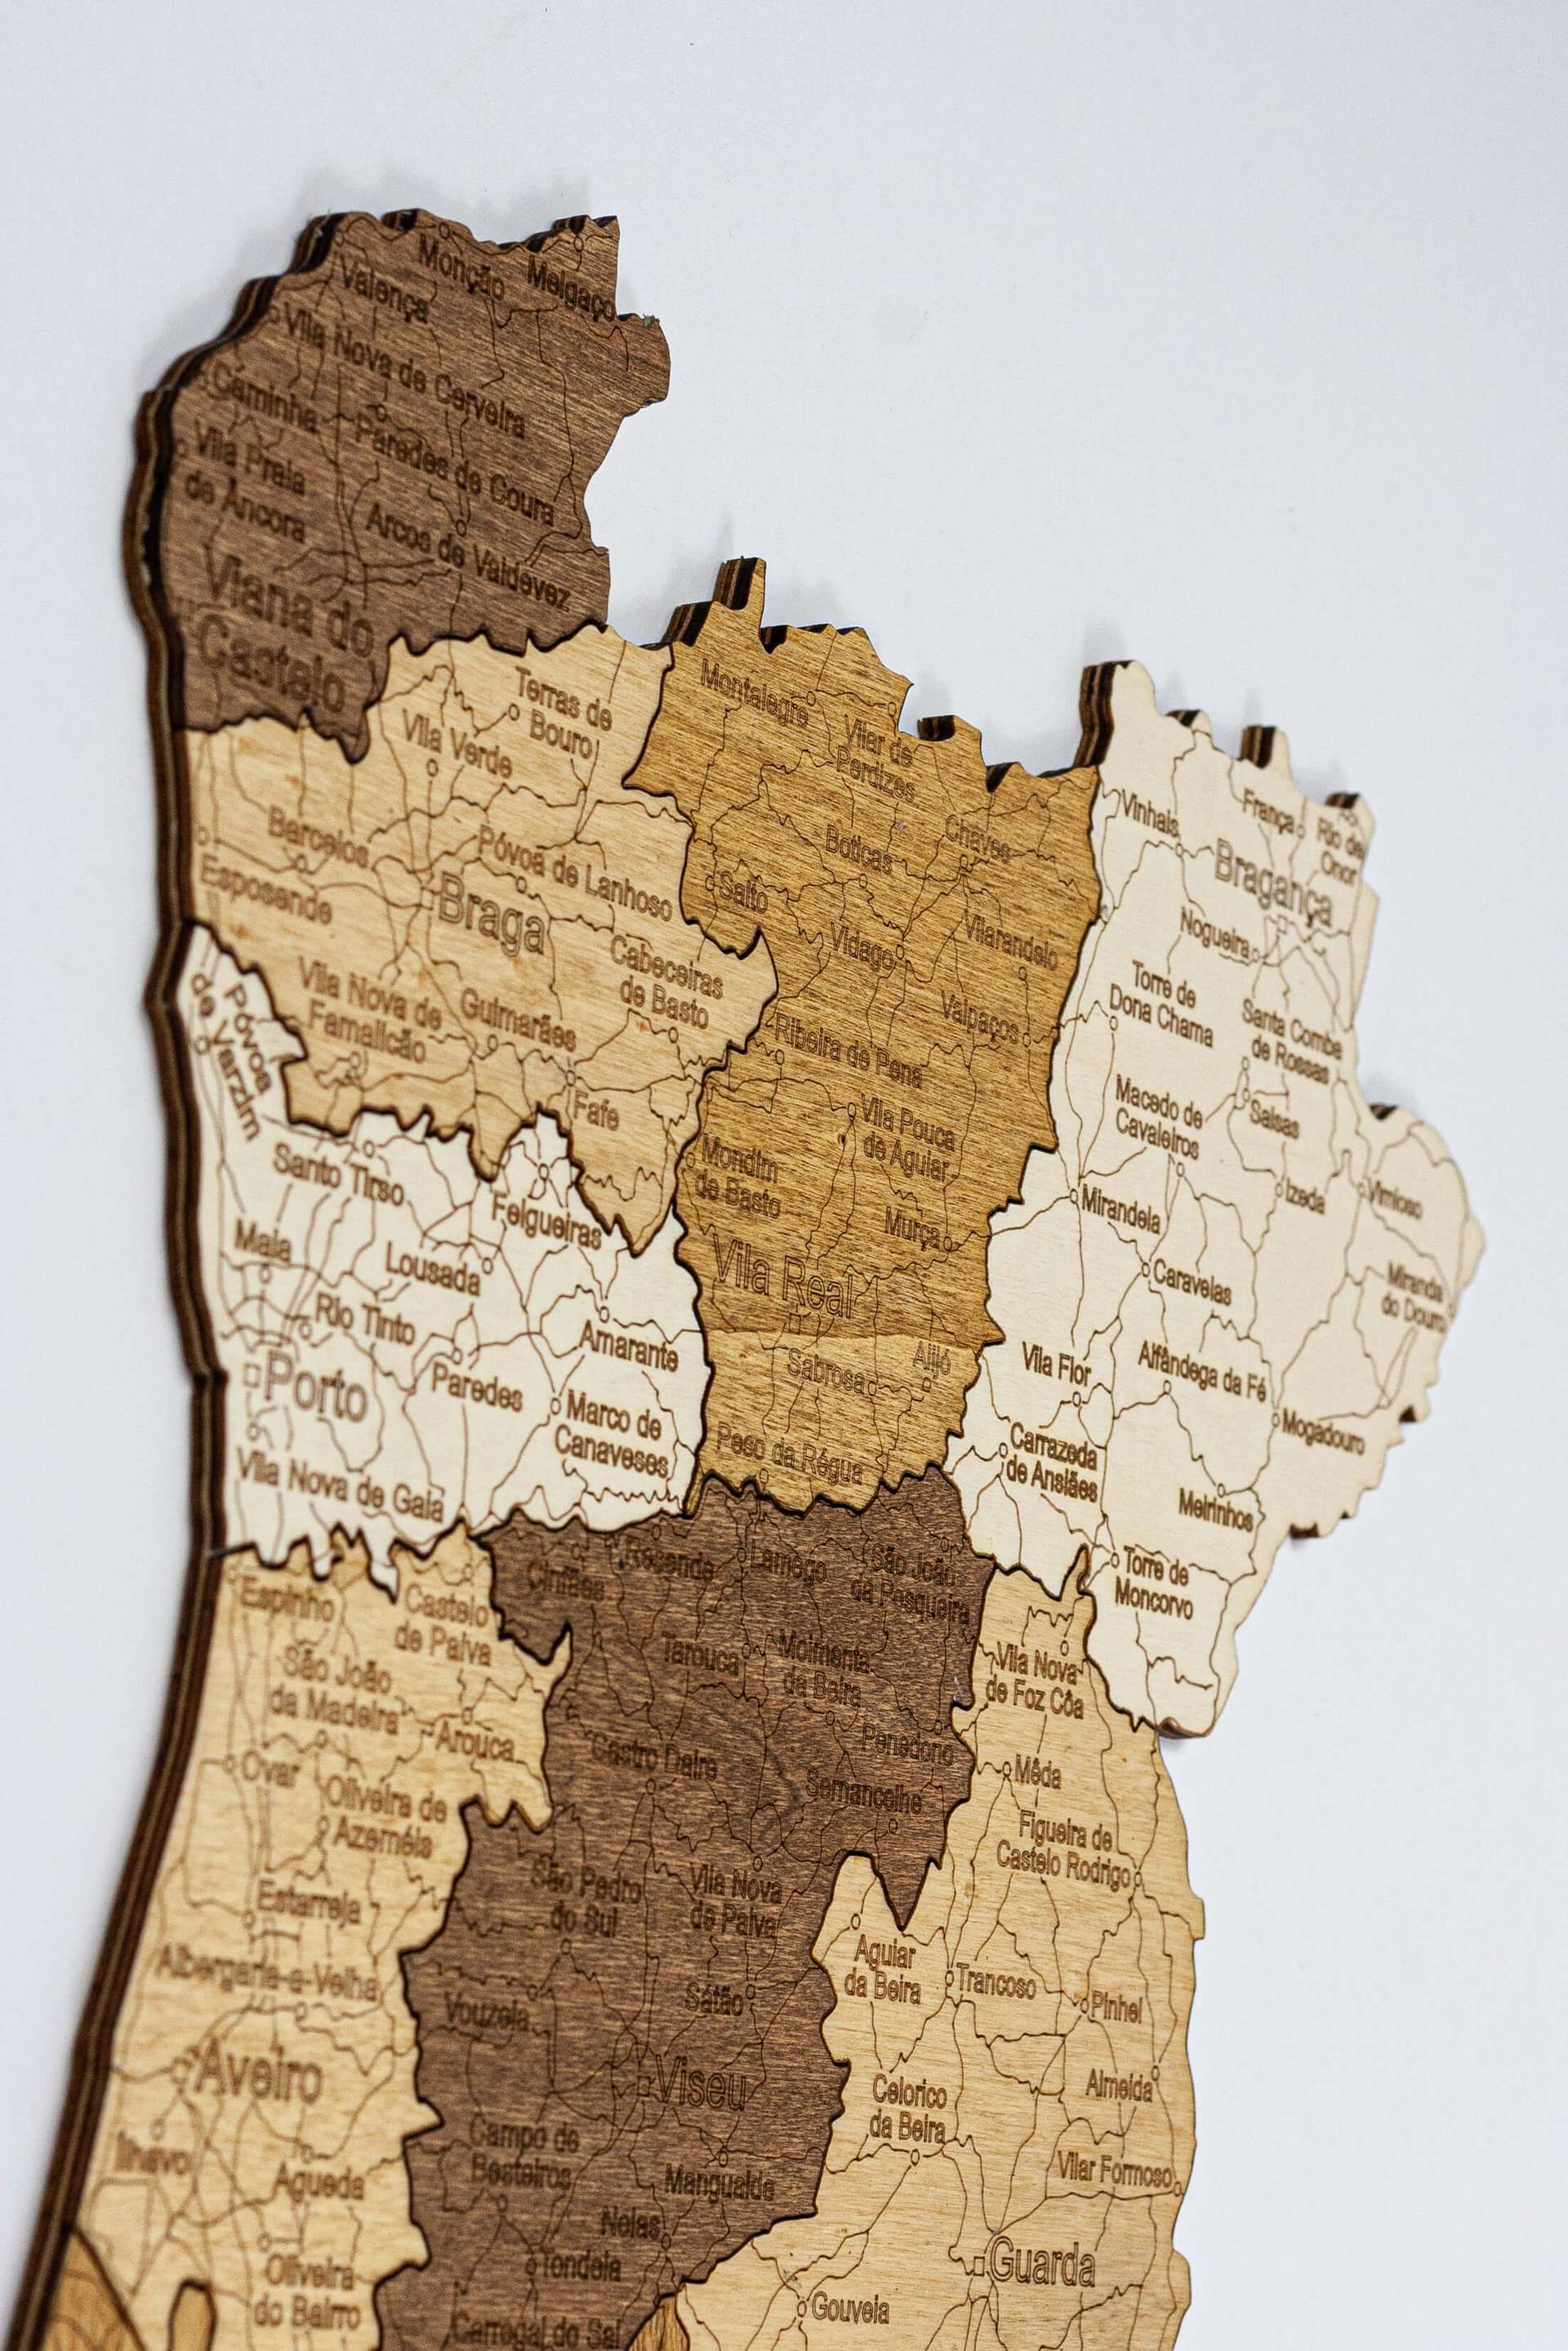 Monção
Melgaço
Valença
Vila Nova de Cerveira
Caminha
Paredes de Coura
Vila Praia
de Âncora
Arcos de Valdevez
Viana do
Castelo
Terras de
Bouro
Vila Verde
Montalegre
Vilar de
Perdizes
Vinhais
França
Rio de
Onor
Barcelos
Póvoa de Lanhoso
Boticas
Chaves
Bragança
Esposende
Braga
Salto
Vidago
Vilarandelo
Nogueira
Cabeceiras
de Basto
Torre de
Dona Chama
Santa Comba
de Rossas
Vila Nova de
Famalicão
Guimarães
Valpaços
Póvoa
de Varzim
Ribeira de Pena
Fafe
Vila Pouca
de Aguiar
Macedo de
Cavaleiros
Salsas
Santo Tirso
Felgueiras
Mondim
de Basto
Murça
Mirandela
Izeda
Vimioso
Maia
Lousada
Vila Real
Caravelas
Miranda
do Douro
Rio Tinto
Amarante
Sabrosa
Alijó
Vila Flor
Alfândega da Fé
Porto
Paredes
Marco de
Canaveses
Peso da Régua
Carrazeda
de Ansiães
Mogadouro
Vila Nova de Gaia
Meirinhos
Espinho
Castelo
de Paiva
Cinfães
Resende
Lamego
São João
da Pesqueira
Torre de
Moncorvo
São João
da Madeira
Arouca
Tarouca
Moimenta
da Beira
Vila Nova
de Foz Côa
Ovar
Castro Daire
Penedono
Mêda
Oliveira de
Azeméis
Sernancelhe
Figueira de
Castelo Rodrigo
Estarreja
São Pedro
do Sul
Vila Nova
de Paiva
Albergaria-a-Velha
Vouzela
Sátão
Aguiar
da Beira
Trancoso
Pinhel
Aveiro
Viseu
Celorico
da Beira
Almeida
Ílhavo
Águeda
Campo de
Besteiros
Mangualde
Vilar Formoso
Nelas
Oliveira
do Bairro
Tondela
Guarda
Carregal do Sal
Gouveia